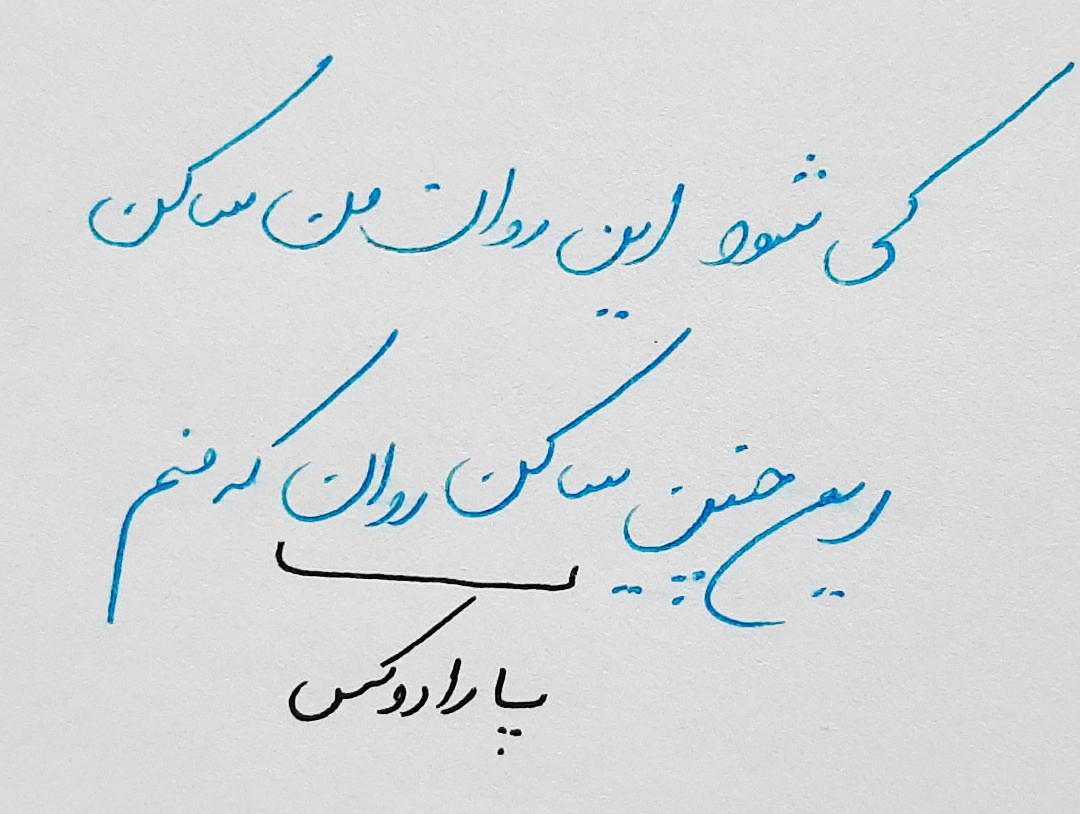 کی شود این روان من ساکن
اینچنین ساکن روان که منم
پارادوکس